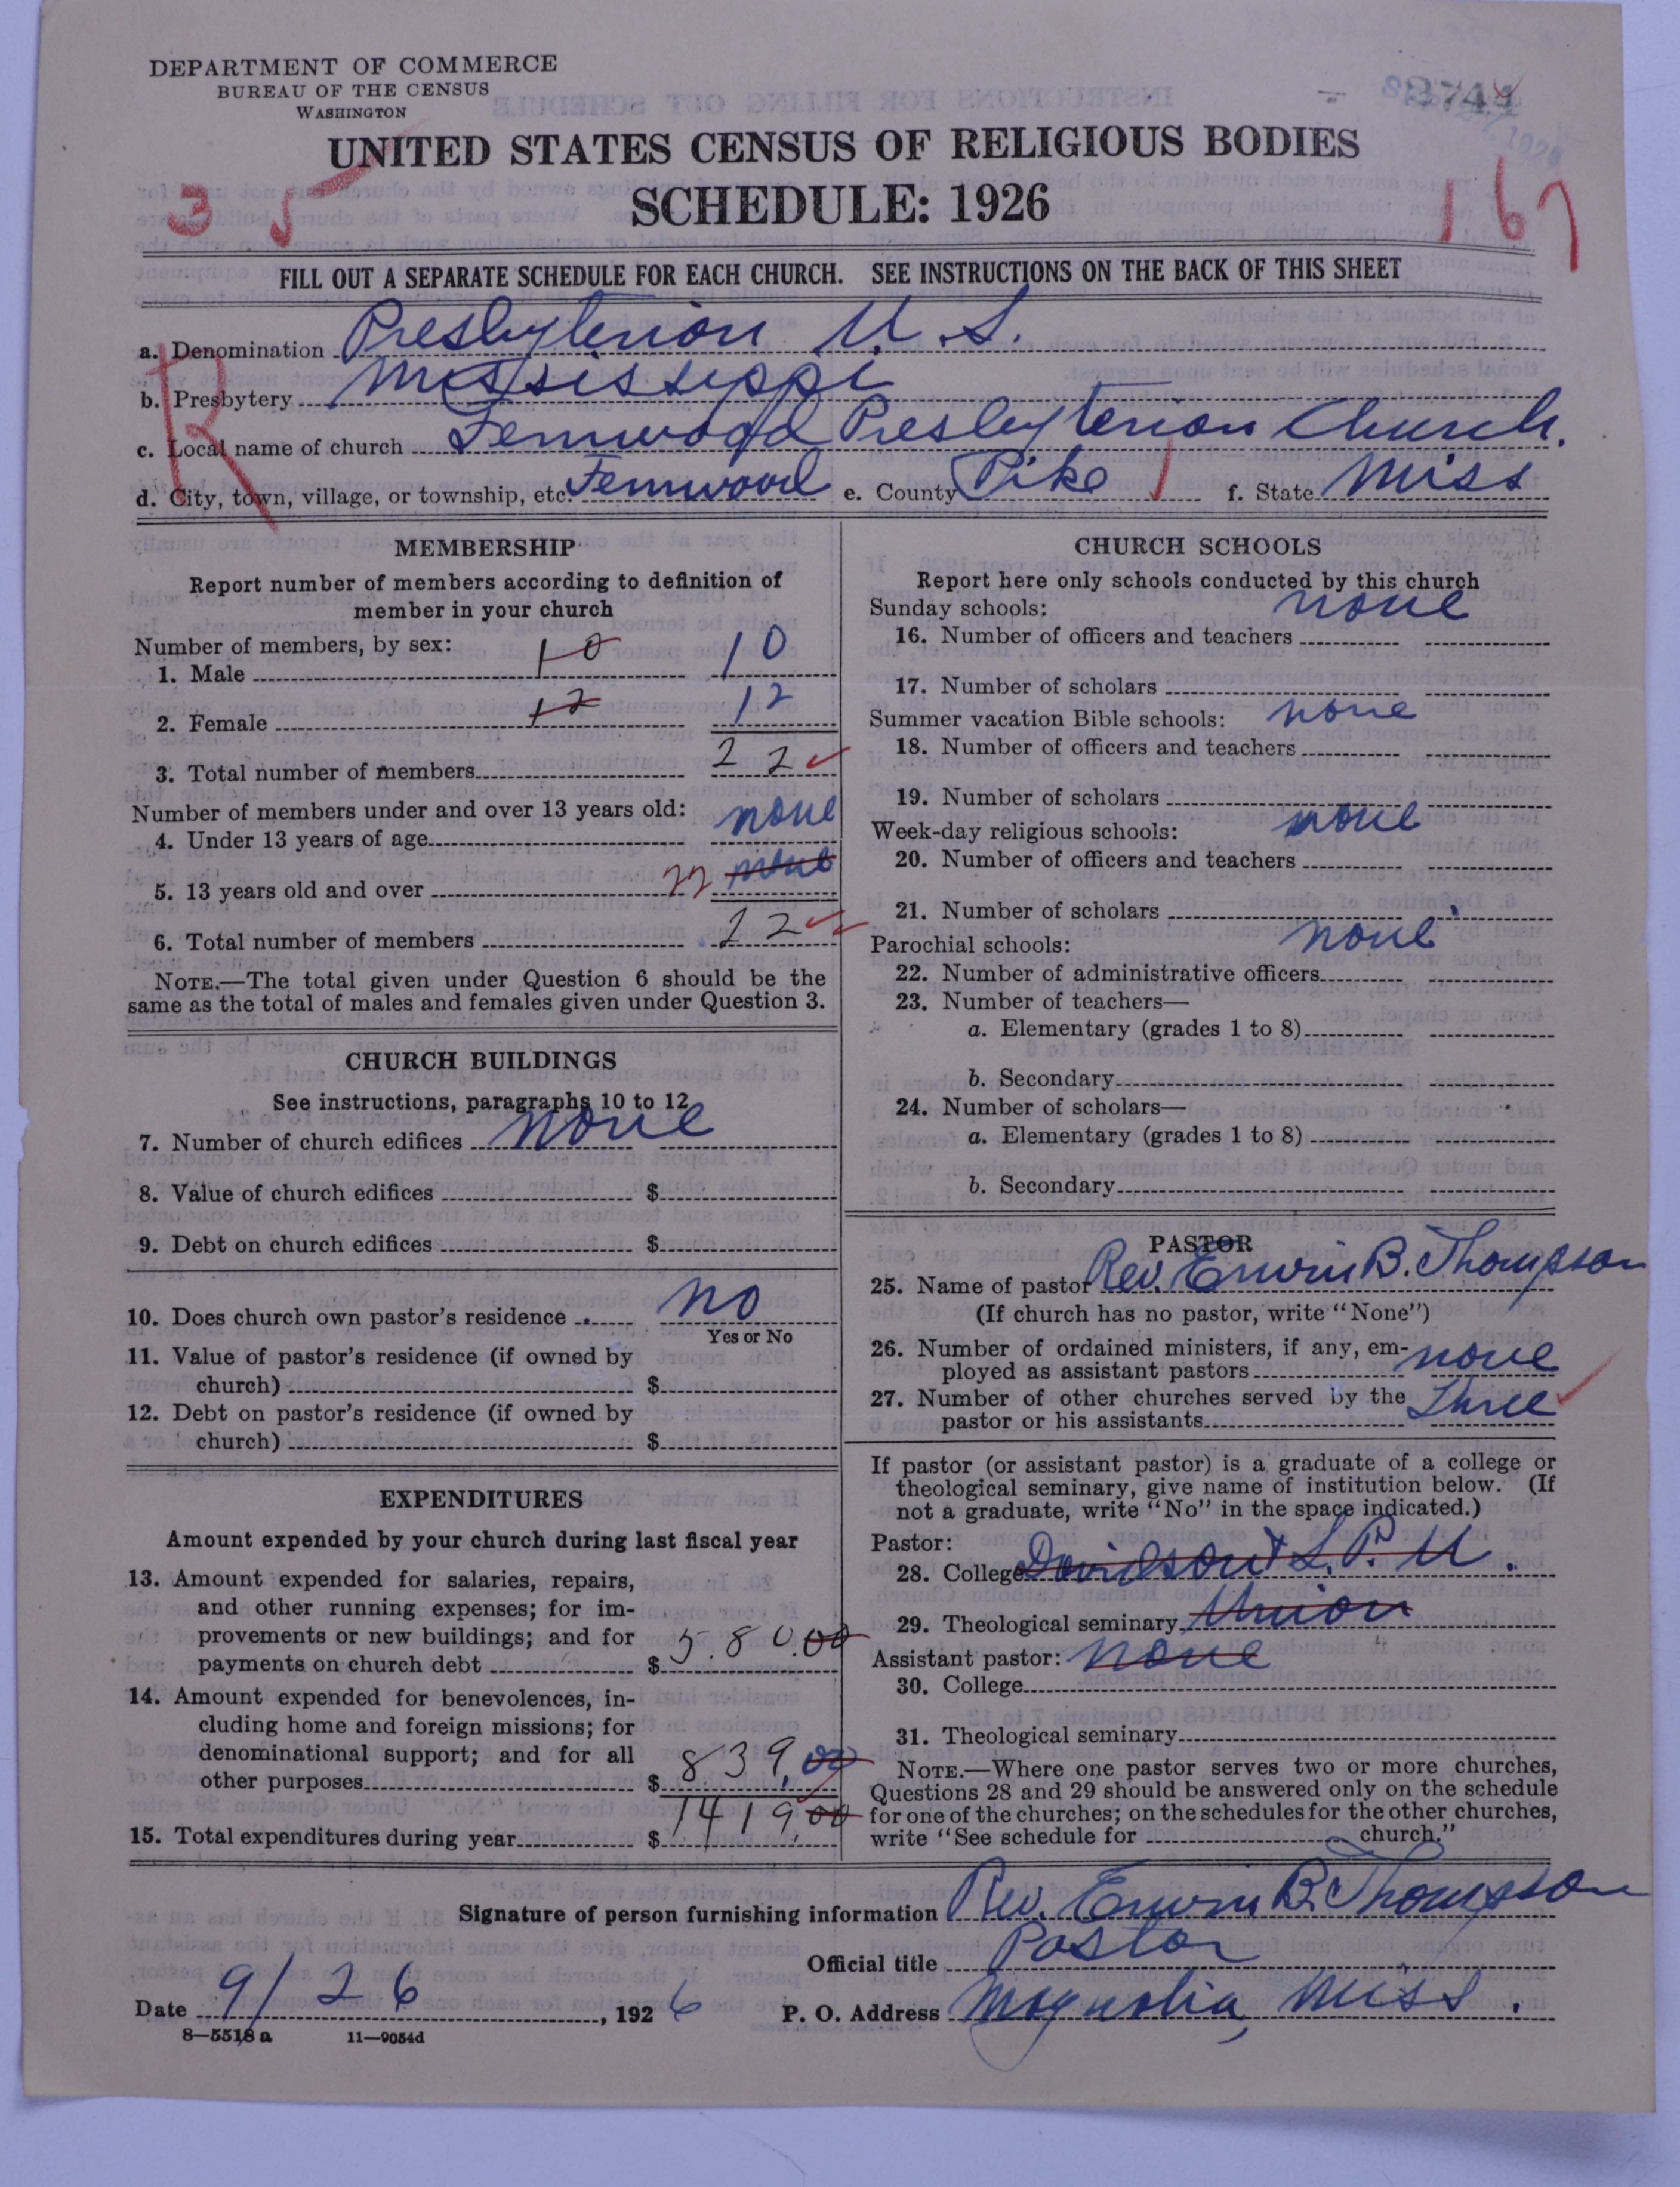 DEPARTMENT OF COMMERCE
BUREAU OF THE CENSUS
WASHINGTON
UNITED STATES CENSUS OF RELIGIOUS BODIES
SCHEDULE: 1926
3 5
167
FILL OUT A SEPARATE SCHEDULE FOR EACH CHURCH. SEE INSTRUCTIONS ON THE BACK OF THIS SHEET
R
a. Denomination Presbyterian U. S.
b. Presbytery Mississippi
c. Local name of church Fernwood Presbyterian Church.
d. City, town, village, or township, etc. Fernwood e. County Pike f. State Miss
MEMBERSHIP
Report number of members according to definition of
member in your church
Number of members, by sex:
1. Male 10 10
2. Female 12 12
3. Total number of members 22
Number of members under and over 13 years old:
4. Under 13 years of age none
5. 13 years old and over 22 none
6. Total number of members 22
NOTE.—The total given under Question 6 should be the
same as the total of males and females given under Question 3.
CHURCH BUILDINGS
See instructions, paragraphs 10 to 12
7. Number of church edifices none
8. Value of church edifices $
9. Debt on church edifices $
10. Does church own pastor's residence no
Yes or No
11. Value of pastor's residence (if owned by
church) $
12. Debt on pastor's residence (if owned by
church) $
EXPENDITURES
Amount expended by your church during last fiscal year
13. Amount expended for salaries, repairs,
and other running expenses; for im-
provements or new buildings; and for
payments on church debt $ 580.00
14. Amount expended for benevolences, in-
cluding home and foreign missions; for
denominational support; and for all
other purposes $ 839.00
15. Total expenditures during year $ 1419.00
CHURCH SCHOOLS
Report here only schools conducted by this church
Sunday schools: none
16. Number of officers and teachers
17. Number of scholars
Summer vacation Bible schools: none
18. Number of officers and teachers
19. Number of scholars
Week-day religious schools: none
20. Number of officers and teachers
21. Number of scholars
Parochial schools: none
22. Number of administrative officers
23. Number of teachers—
a. Elementary (grades 1 to 8)
b. Secondary
24. Number of scholars—
a. Elementary (grades 1 to 8)
b. Secondary
PASTOR
25. Name of pastor Rev. Erwin B. Thompson
(If church has no pastor, write "None")
26. Number of ordained ministers, if any, em-
ployed as assistant pastors none
27. Number of other churches served by the
pastor or his assistants Three
If pastor (or assistant pastor) is a graduate of a college or
theological seminary, give name of institution below. (If
not a graduate, write "No" in the space indicated.)
Pastor:
28. College Davidson & S. P. U.
29. Theological seminary Union
Assistant pastor: none
30. College
31. Theological seminary
NOTE.—Where one pastor serves two or more churches,
Questions 28 and 29 should be answered only on the schedule
for one of the churches; on the schedules for the other churches,
write "See schedule for church."
Signature of person furnishing information Rev. Erwin B. Thompson
Official title Pastor
Date 9/26, 1926 P. O. Address Magnolia, Miss.
8—5518 a 11—9054d